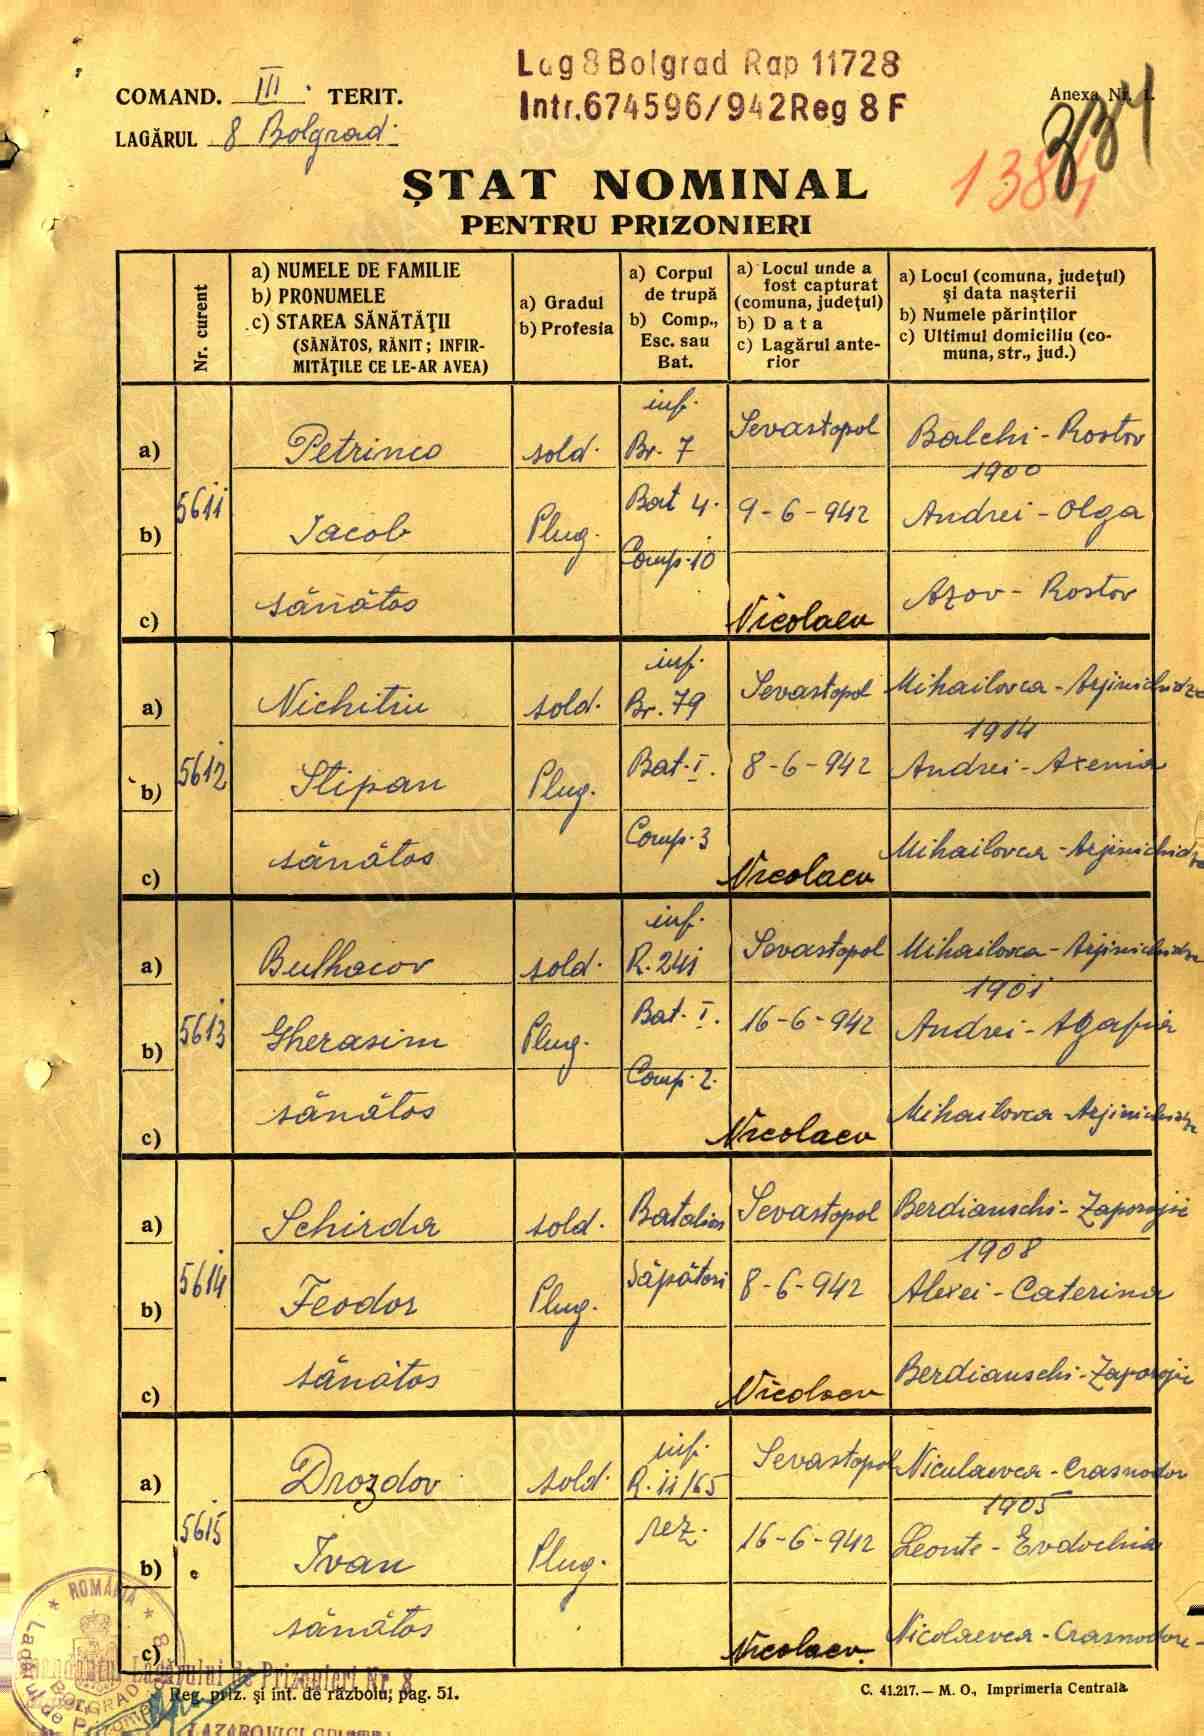 Lag 8 Bolgrad Rap 11728
Intr.674596/942 Reg 8 F
COMAND. III. TERIT.
Anexa Nr. 1.
LAGĂRUL 8 Bolgrad.
334
1384
ȘTAT NOMINAL
PENTRU PRIZONIERI
Nr. curent
a) NUMELE DE FAMILIE
b) PRONUMELE
c) STAREA SĂNĂTĂŢII
(SĂNĂTOS, RĂNIT; INFIR-
MITĂŢILE CE LE-AR AVEA)
a) Gradul
b) Profesia
a) Corpul
de trupă
b) Comp.,
Esc. sau
Bat.
a) Locul unde a
fost capturat
(comuna, judeţul)
b) Data
c) Lagărul ante-
rior
a) Locul (comuna, judeţul)
şi data naşterii
b) Numele părinţilor
c) Ultimul domiciliu (co-
muna, str., jud.)
5611
a) Petrinco sold. inf. Br. 7 Sevastopol Balchi - Rostov
1900
b) Iacob Plug. Bat 4. 9-6-942 Andrei - Olga
Comp. 10
c) sănătos Nicolaev Azov - Rostov
5612
a) Nichitin sold. inf. Br. 79 Sevastopol Mihailovca - Arjinichidze
1914
b) Stipan Plug. Bat. I. 8-6-942 Andrei - Axenia
c) sănătos Comp. 3 Nicolaev Mihailovca - Arjinichidze
5613
a) Bulhacov sold. inf. R. 241 Sevastopol Mihailovca - Arjinichidze
1901
b) Gherasim Plug. Bat. I. 16-6-942 Andrei - Agafia
Comp. 2.
c) sănătos Nicolaev Mihailovca - Arjinichidze
5614
a) Schirda sold. Batalion Sevastopol Berdianschi - Zaporojie
1908
b) Feodor Plug. Săpători 8-6-942 Alexei - Caterina
c) sănătos Nicolaev Berdianschi - Zaporojie
5615
a) Drozdov sold. inf. R. 11/65 Sevastopol Niculaevca - Crasnodor
1905
b) Ivan Plug. rez. 16-6-942 Leonte - Evdochia
c) sănătos Nicolaev. Nicolaevca - Crasnodor
* ROMÂNIA *
Lagărul de
BOLGRAD
Comandantul Lagărului de Prizonieri Nr. 8
Reg. priz. şi int. de războiu; pag. 51.
C. 41.217.— M. O., Imprimeria Centrală.
LAZAROVICI